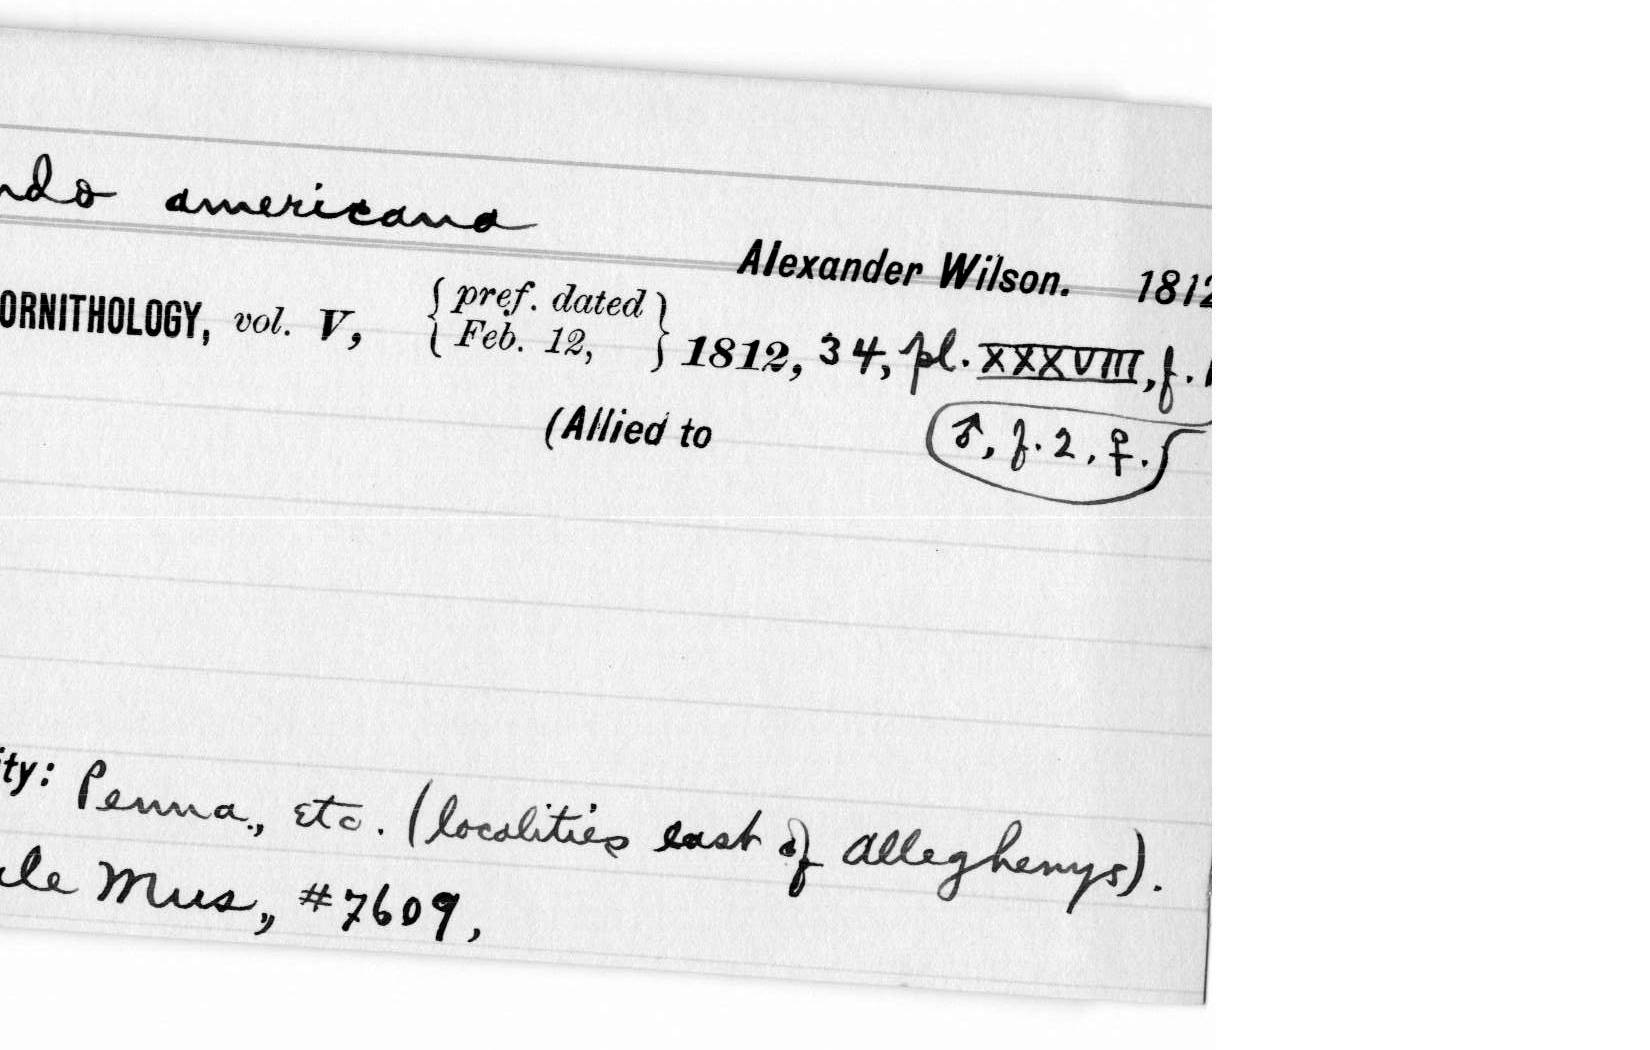 ndo americana
Alexander Wilson. 1812
ORNITHOLOGY, vol. V, { pref. dated Feb. 12, } 1812, 34, pl. XXXVIII, f. 1
(Allied to
♂, f. 2, ♀.
ity: Penna., etc. (localities east of Alleghenys).
ale Mus., #7609,